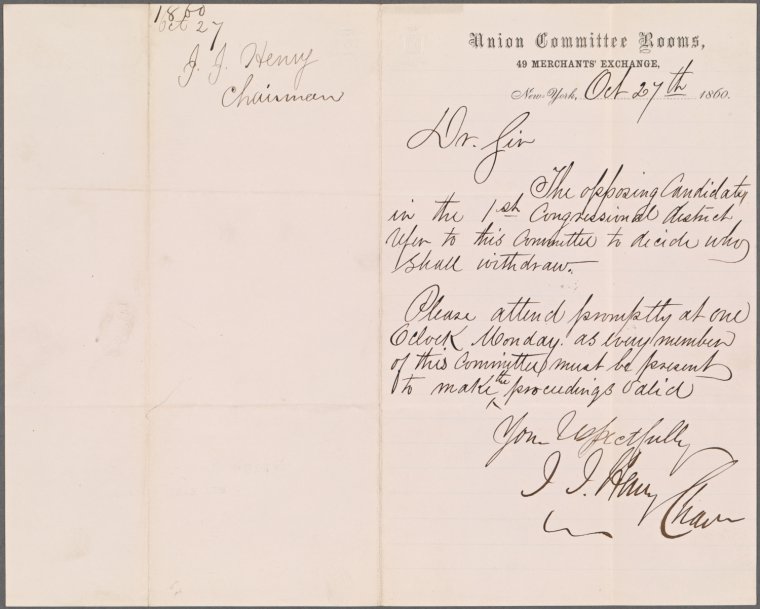 1860
Oct 27
J. J. Henry
Chairman
Union Committee Rooms,
49 MERCHANTS' EXCHANGE,
New-York, Oct 27th 1860.
Dr. Sir
The opposing Candidates
in the 1st Congressional district
refer to this Committee to decide who
Shall withdraw.
Please attend promptly at one
OClock Monday. as every member
of this Committee must be present
to make the proceedings valid
Respectfully
J. J. Henry